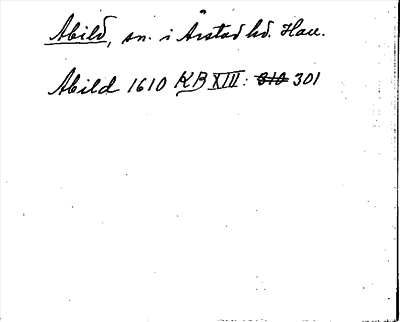 Abild, sn. i Årstad hd. Hall.
Abild 1610 KB XIII: 310 301